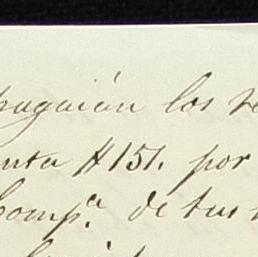 pagaián los
enta #151. por
Comp.ª de tus